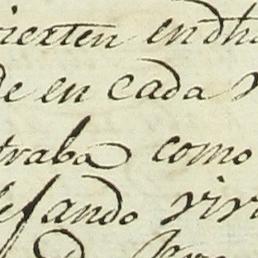 vierten endh
de en cada
traba como
esando vivi